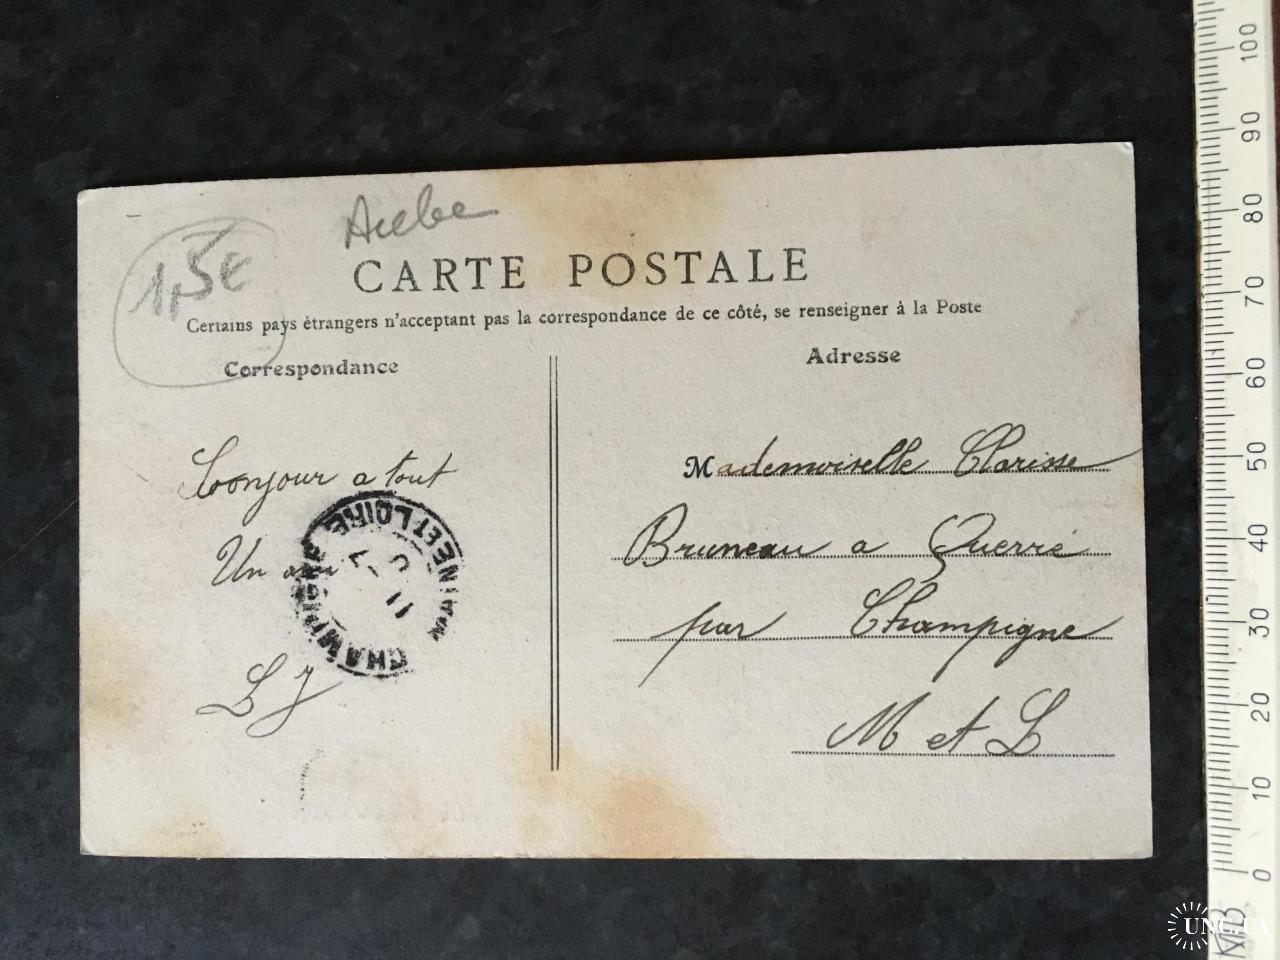 Aube
1,5€
CARTE POSTALE
Certains pays ètrangers n'acceptant pas la correspondance de ce côté, se renseigner à la Poste
Correspondance
Adresse
Bonjour a tout
Un ami
L J
CHAMPIGNÉ MAINE ET LOIRE
11
Mademoiselle Clarisse
Bruneau a Querré
par Champigne
M et L
100
90
80
70
60
50
40
30
20
10
0
UNC.UA